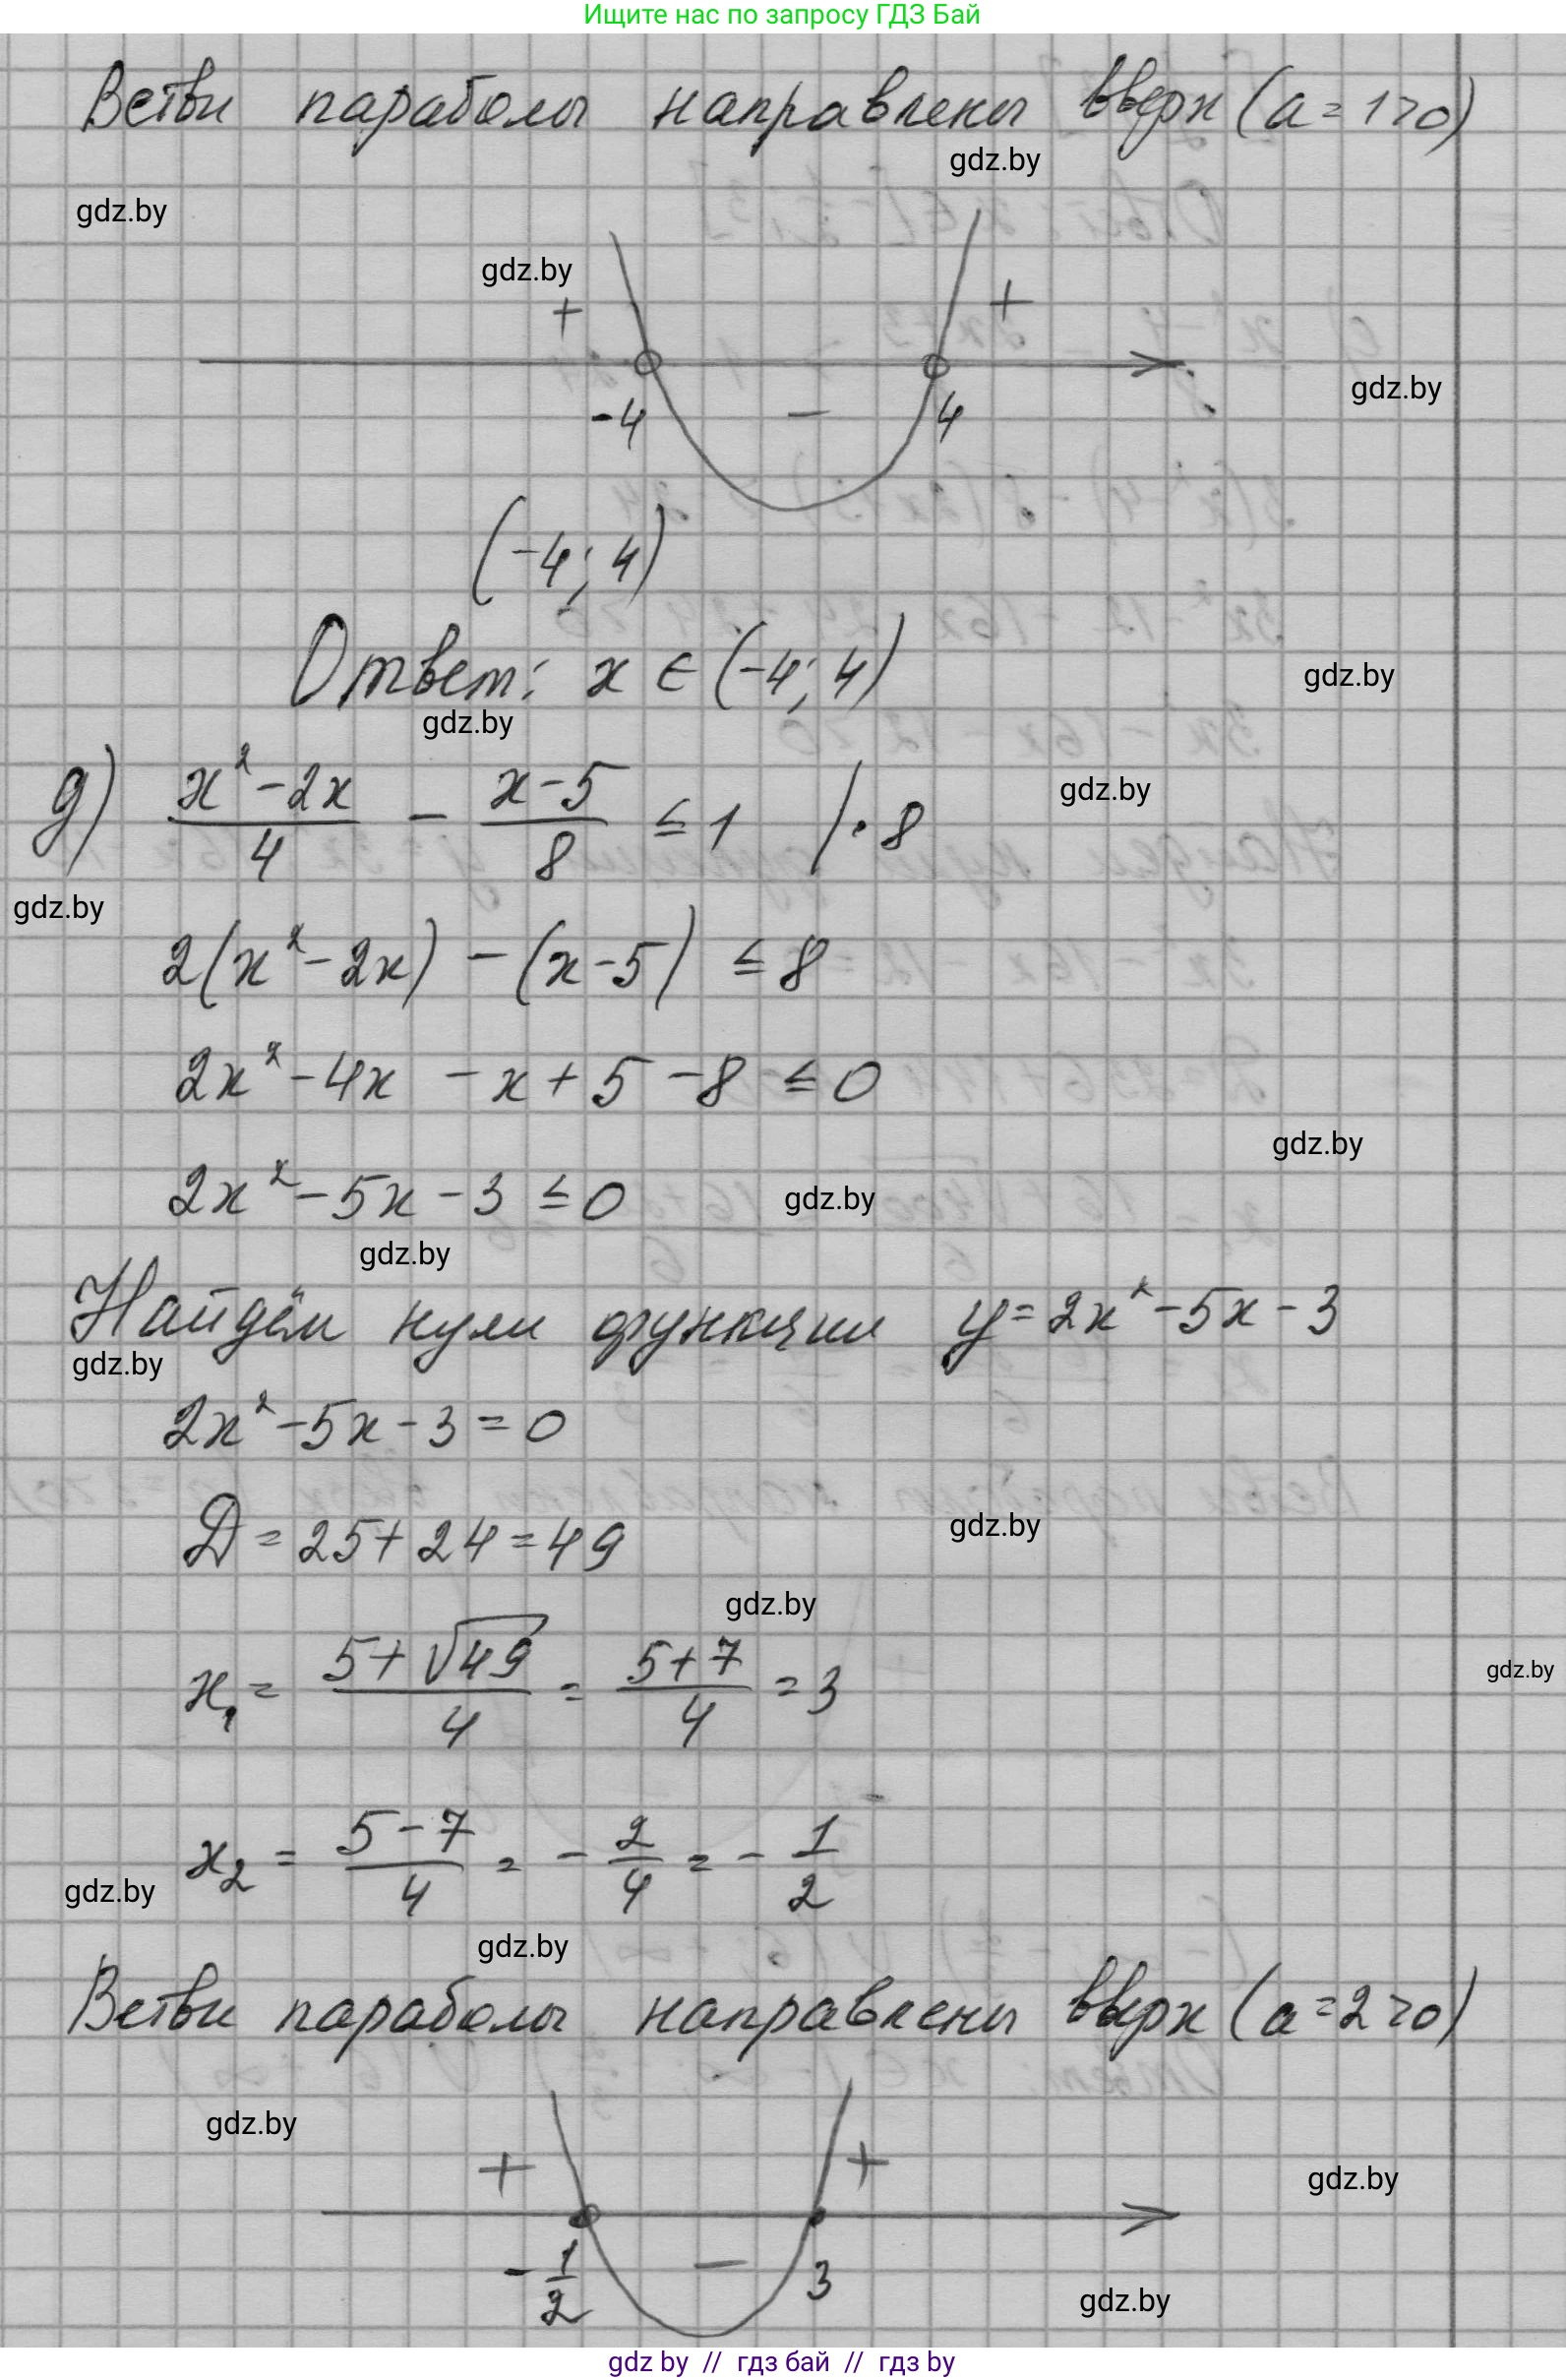 Ищите нас по запросу ГДЗ Бай
Ветви параболы направлены вверх (a = 1 > 0)
gdz.by
gdz.by
gdz.by
+ +
gdz.by
-4 − 4
(-4; 4)
Ответ: x ∈ (-4; 4)
gdz.by
gdz.by
д) (x² - 2x)/4 - (x - 5)/8 ≤ 1 /·8
gdz.by
gdz.by
2(x² - 2x) - (x - 5) ≤ 8
2x² - 4x - x + 5 - 8 ≤ 0
gdz.by
2x² - 5x - 3 ≤ 0
gdz.by
gdz.by
Найдём нули функции y = 2x² - 5x - 3
gdz.by
2x² - 5x - 3 = 0
D = 25 + 24 = 49
gdz.by
gdz.by
x₁ = (5 + √49)/4 = (5 + 7)/4 = 3
gdz.by
x₂ = (5 - 7)/4 = -2/4 = -1/2
gdz.by
gdz.by
Ветви параболы направлены вверх (a = 2 > 0)
gdz.by
+ +
gdz.by
-1/2 − 3
gdz.by
gdz by // гдз бай // гдз by